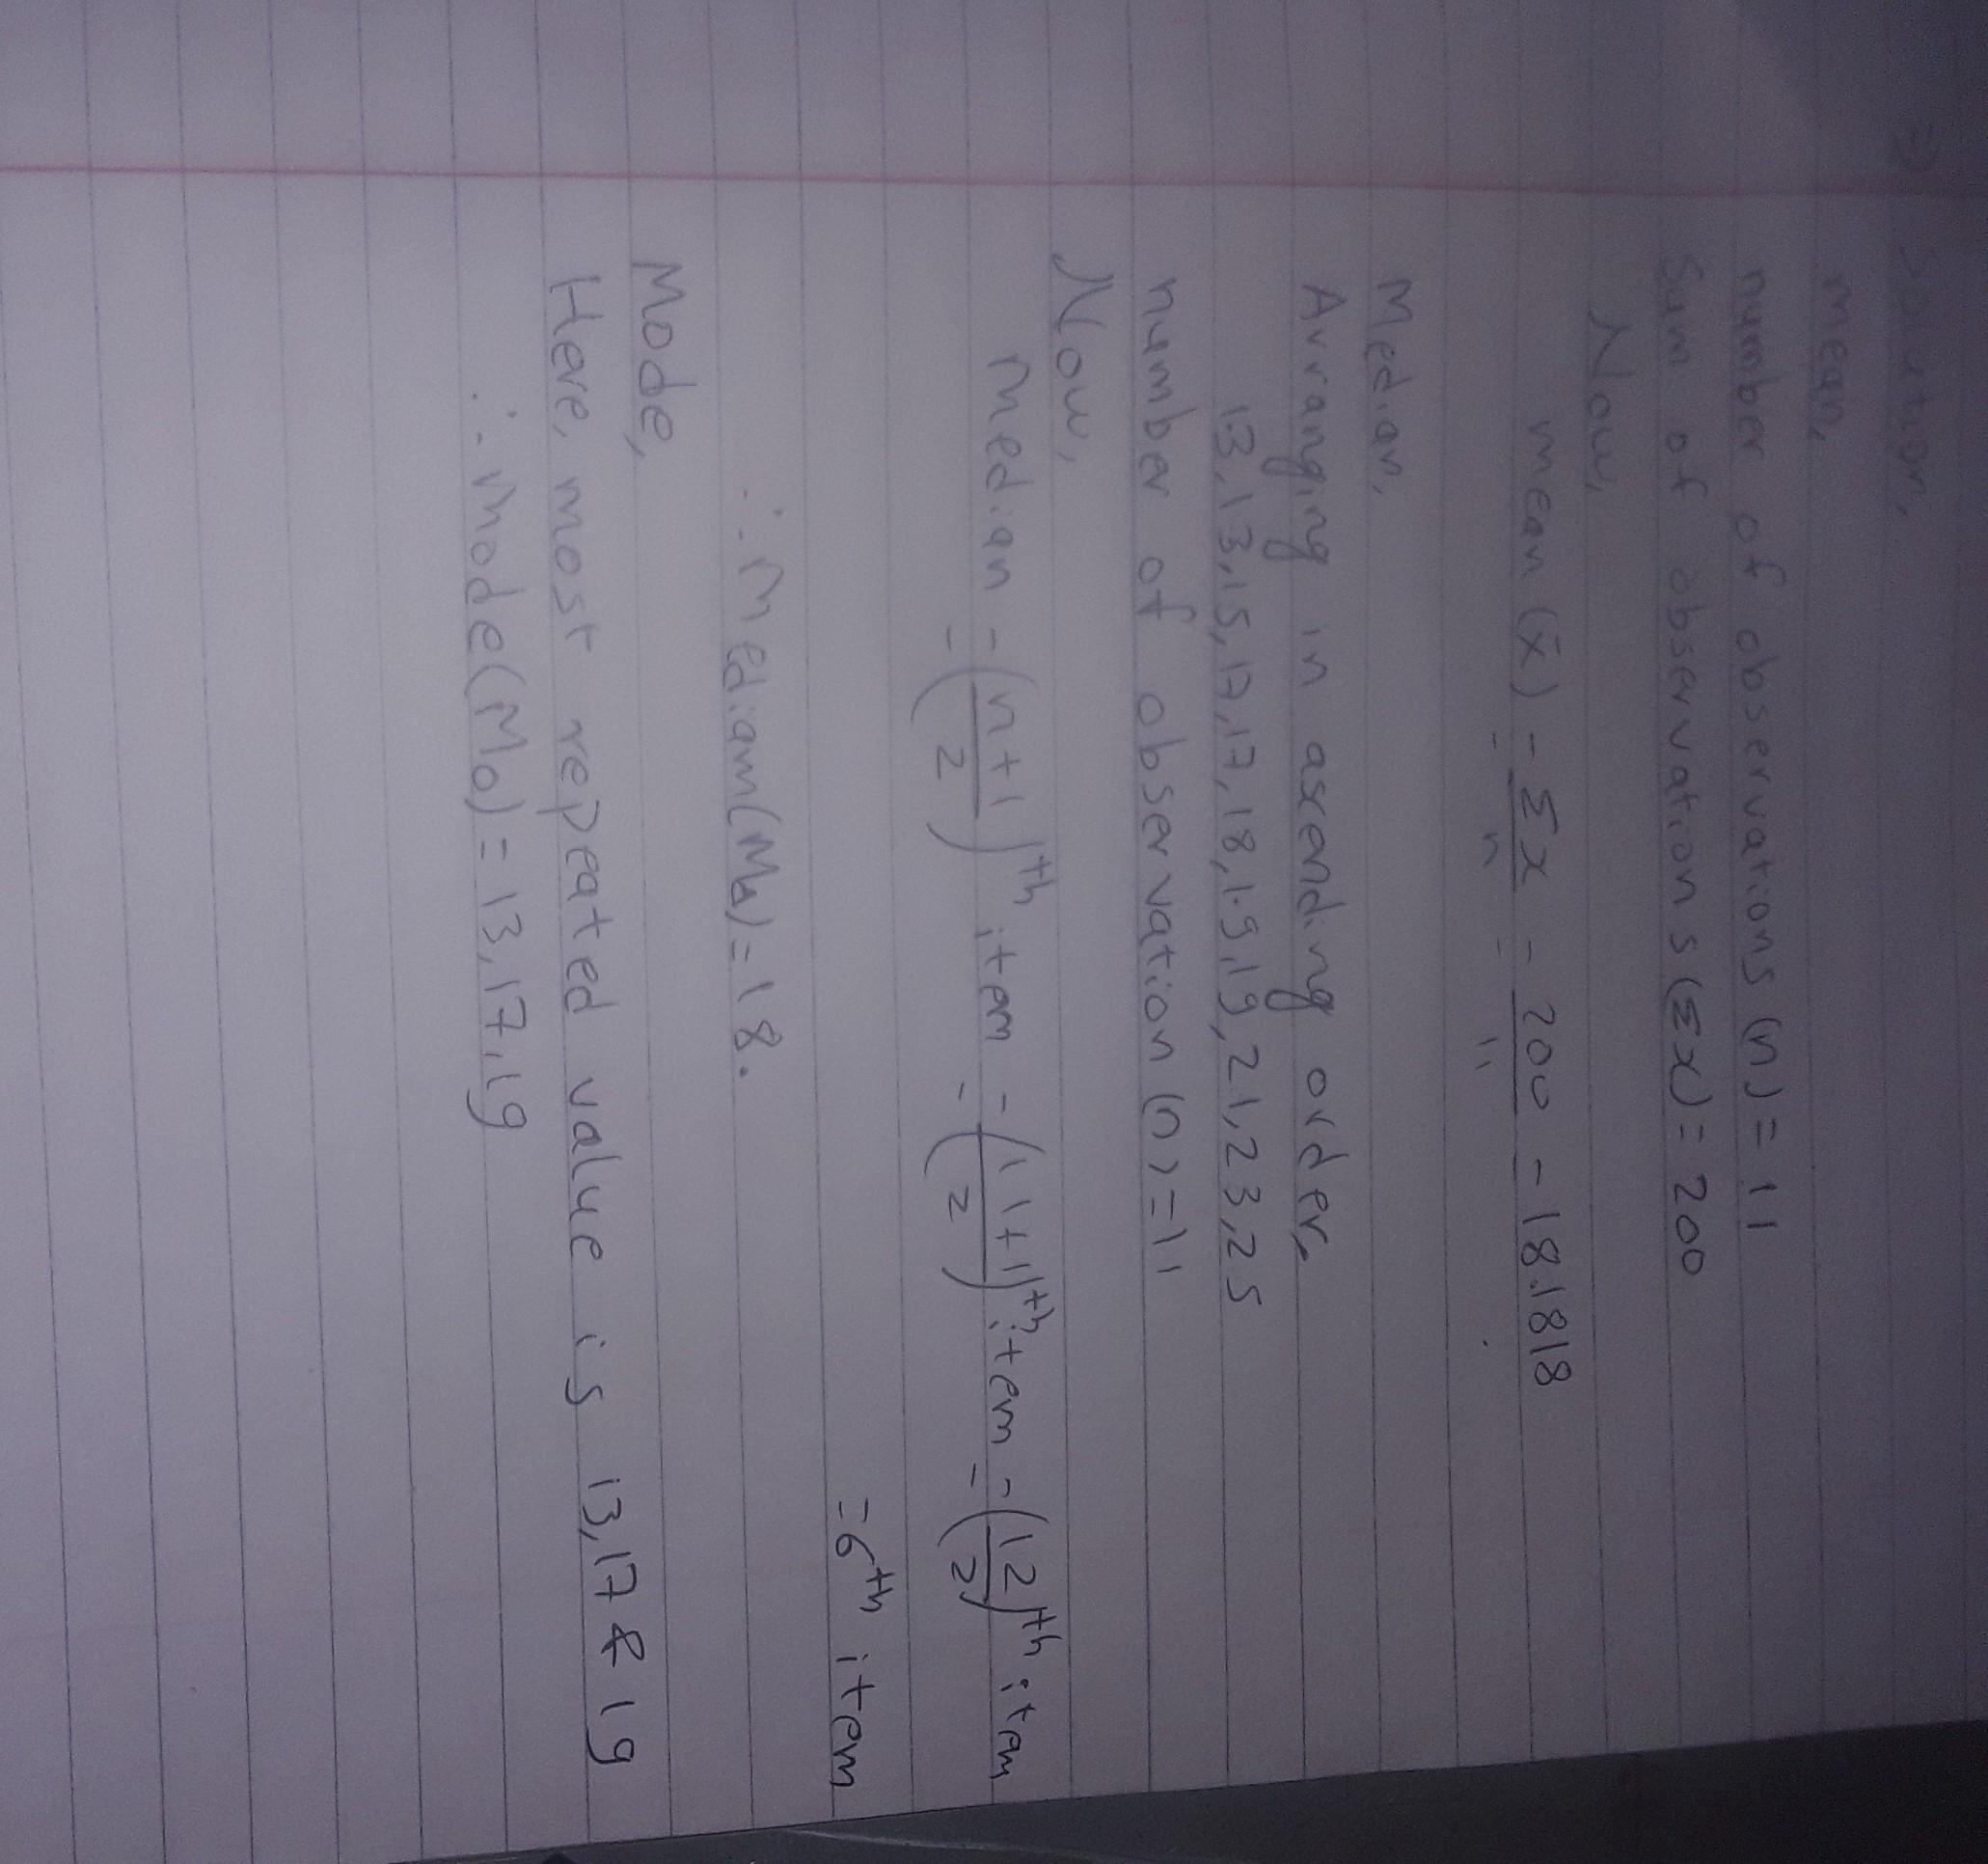 ⇒ Solution,
mean,
number of observations (n) = 11
Sum of observations (Σx) = 200
Now,
mean (x̄) = Σx/n = 200/11 = 18.1818
Median,
Arranging in ascending order,
13,13,15,17,17,18,19,19,21,23,25
number of observation (n) = 11
Now,
Median = (n+1/2)th item = (11+1/2)th item = (12/2)th item
= 6th item
∴ Median(Md) = 18.
Mode,
Here, most repeated value is 13,17 & 19
∴ mode(Mo) = 13,17,19